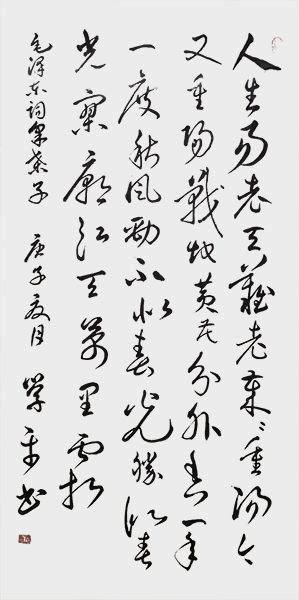 人生易老天難老歲〻重陽今
又重陽戰地黄花分外香一年
一度秋風勁不似春光勝似春
光寥廓江天萬里霜
毛澤東詞采桑子 庚子夏月 學平書